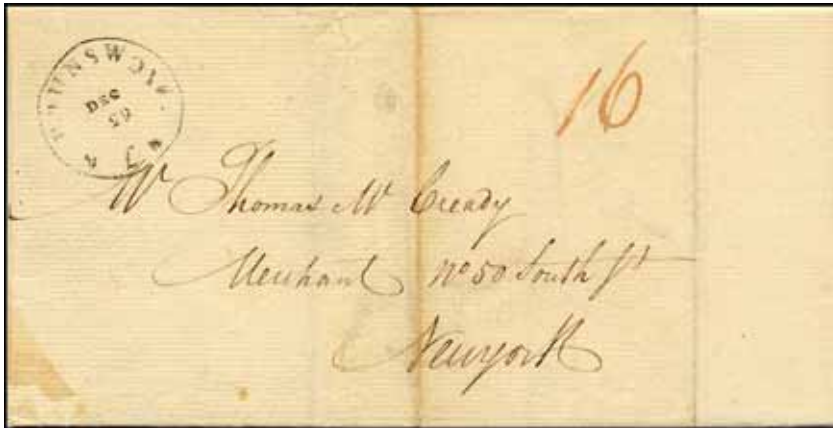 DEC
16
Mr Thomas Mc Cready
Merchant No 50 South St
Newyork